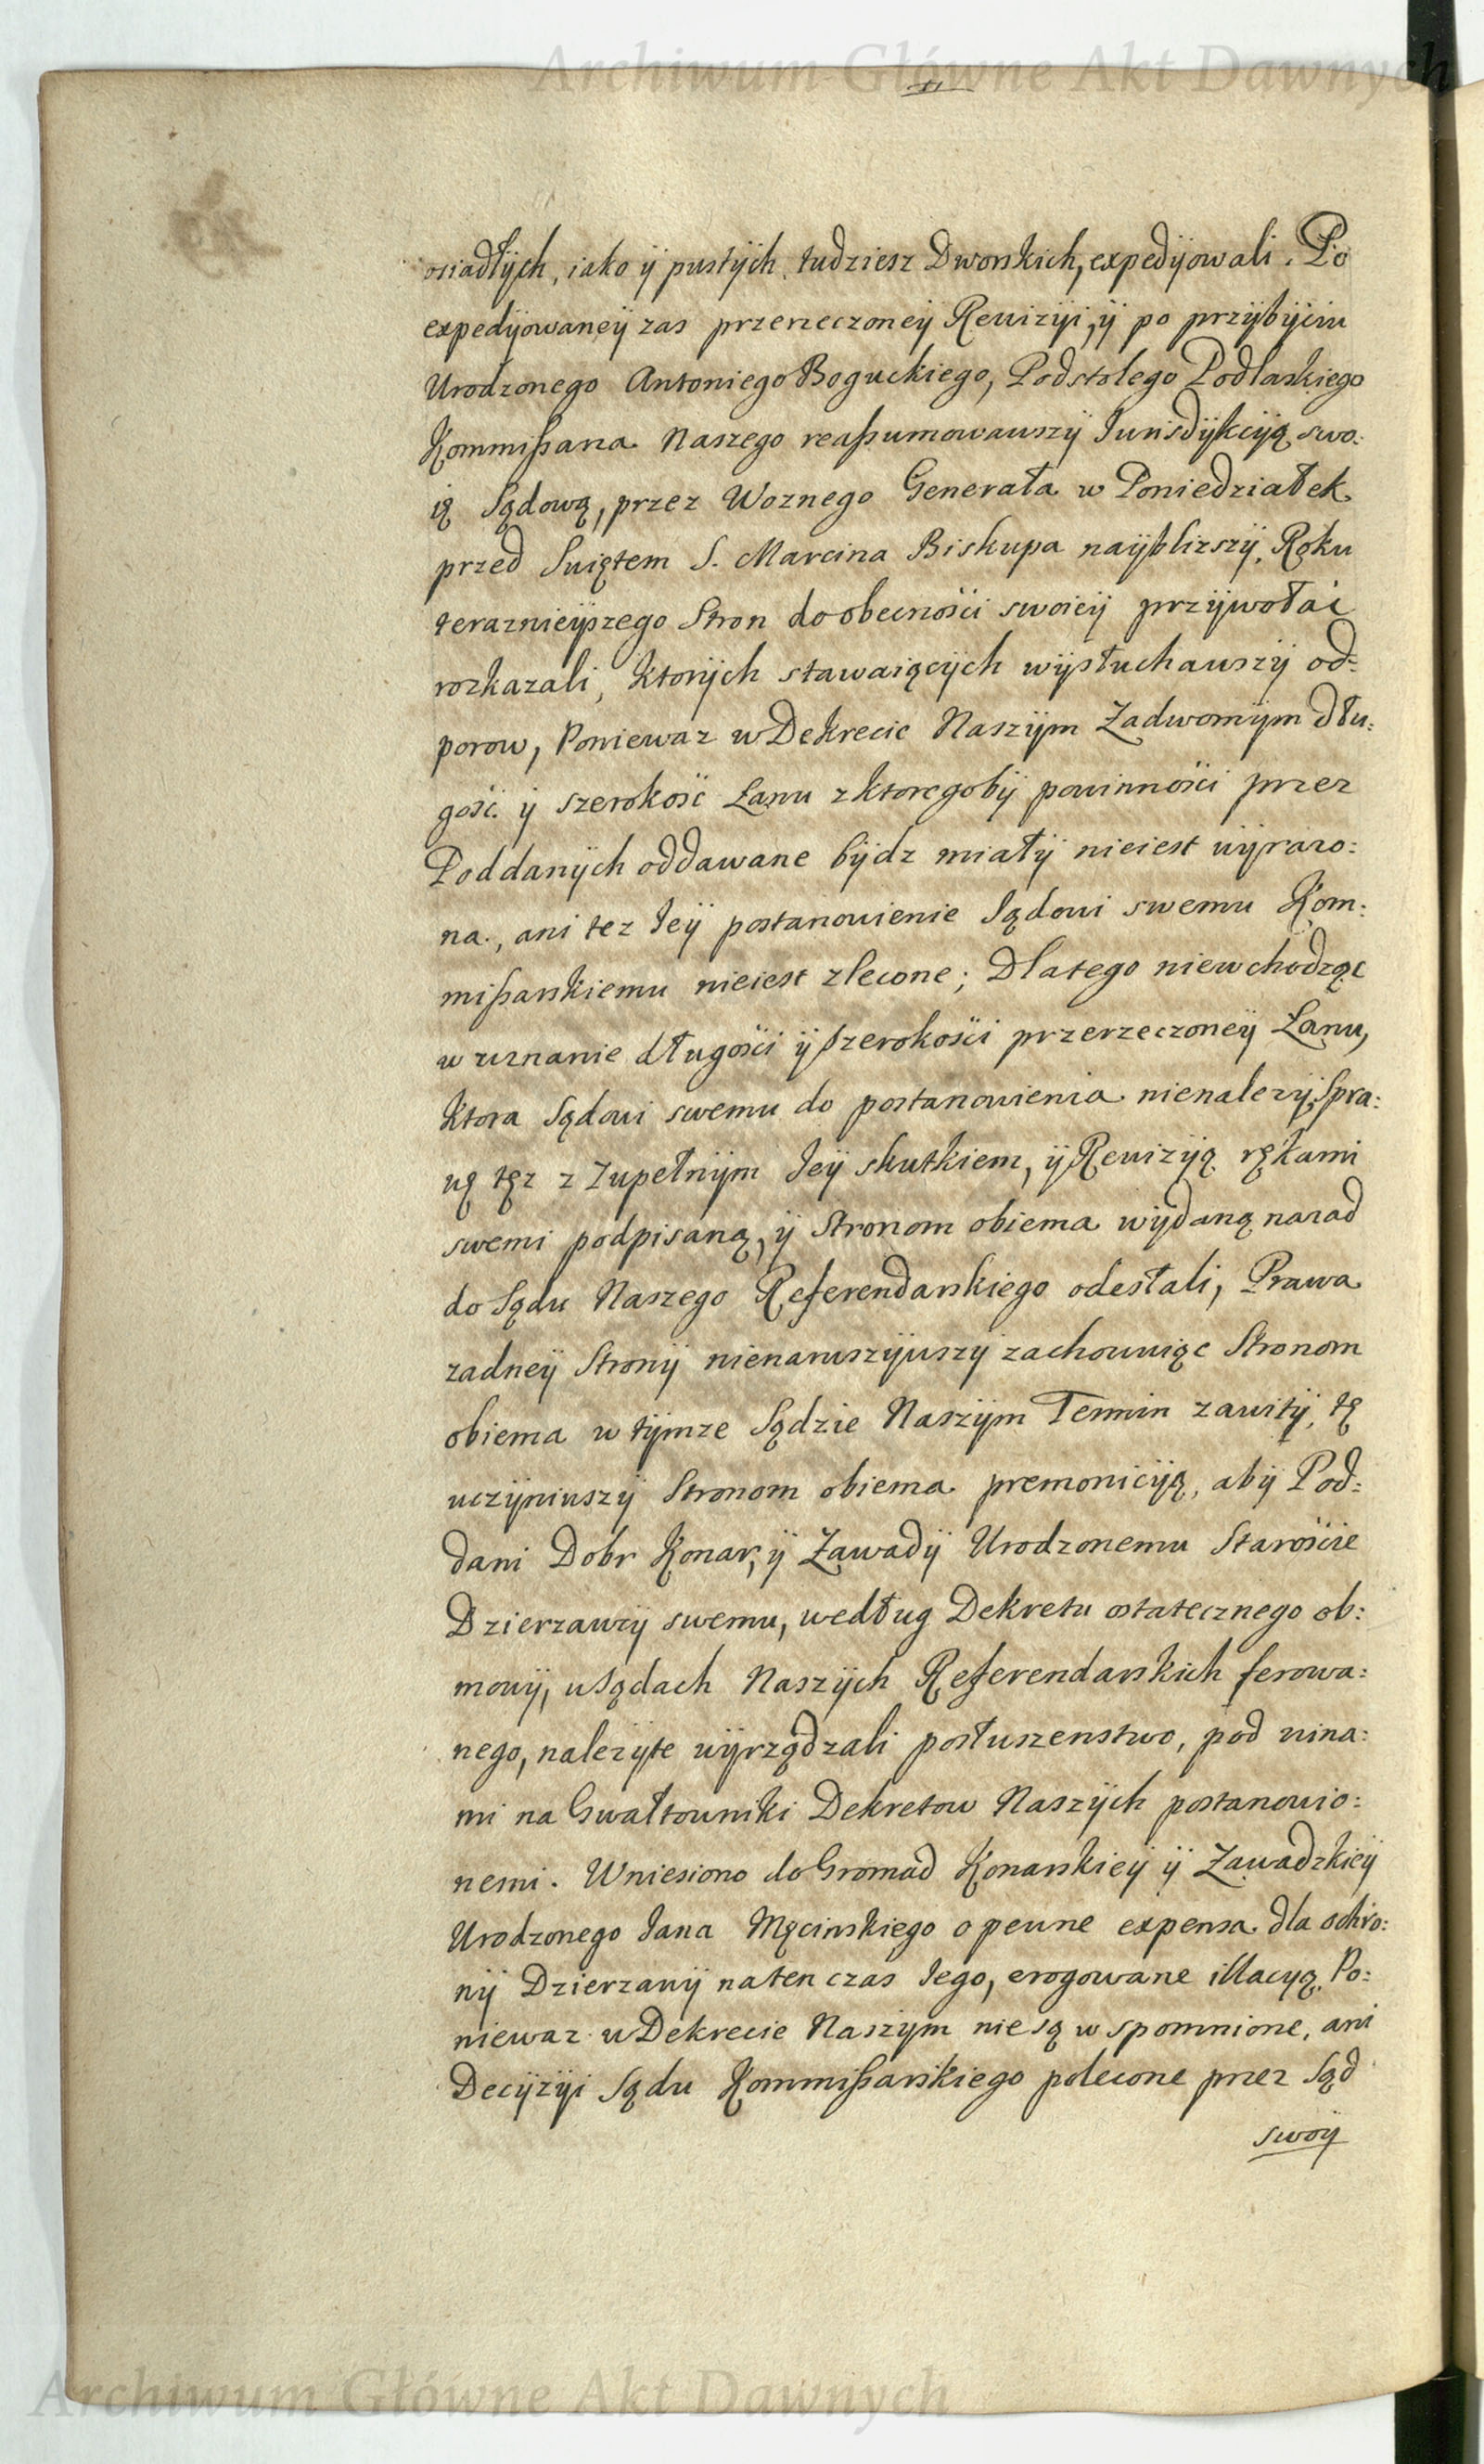 Archiwum Główne Akt Dawnych
osiadłÿch, iako ÿ pustÿch, tudziesz Dworskich, expedÿowali. Po
expedÿowaneÿ zas przerzeczoneÿ Rewizÿi, ÿ po przÿbÿciu
Urodzonego Antoniego Boguckiego, Podstolego Podlaskiego
Kommißarza Naszego reaßumowawszÿ Jurisdÿkcÿą swo:
ią Sądową, przez Woznego Generała w Poniedziałek
przed Swiętem S. Marcina Biskupa naÿblizszÿ, Roku
teraznieÿszego Stron do obecności swoieÿ przÿwołać
rozkazali, ktorÿch stawaiącÿch wÿsłuchawszÿ od:
porow, Poniewaz w Dekrecie Naszÿm Zadwornÿm dłu:
gość ÿ szerokość Łanu z ktoregobÿ powinności przez
Poddanÿch oddawane bÿdz miałÿ nieiest wÿrazo:
na, ani tez Jeÿ postanowienie Sądowi swemu Kom:
mißarskiemu nieiest zlecone; Dlatego niewchodząc
w uznanie długości ÿ szerokości przerzeczoneÿ Łanu,
ktora Sądowi swemu do postanowienia nienalezÿ, Spra:
wę tęz z zupełnÿm Jeÿ skutkiem, ÿ Rewizÿą rękami
swemi podpisaną, ÿ Stronom obiema wÿdaną nazad
do Sądu Naszego Referendarskiego odesłali, Prawa
zadneÿ Stronÿ nienaruszÿwszÿ zachowuiąc Stronom
obiema w tÿmze Sądzie Naszÿm Termin zawitÿ, tę
uczÿniwszÿ Stronom obiema premonicÿą, abÿ Pod:
dani Dobr Konar, ÿ Zawadÿ Urodzonemu Staroście
Dzierzawcÿ swemu, według Dekretu ostatecznego ob:
mowÿ, w Sądach Naszÿch Referendarskich ferowa:
nego, nalezÿte wÿrządzali posłuszenstwo, pod wina:
mi na Gwałtowniki Dekretow Naszÿch postanowio:
nemi. Wniesiono do Gromad Konarskieÿ ÿ Zawadzkieÿ
Urodzonego Jana Męcinskiego o pewne expensa dla ochro:
nÿ Dzierzawÿ naten czas Jego, erogowane illacyą, Po:
niewaz w Dekrecie Naszym nie są wspomnione, ani
Decÿzÿi Sądu Kommißarskiego polecone przez Sąd
swoÿ
Archiwum Główne Akt Dawnych